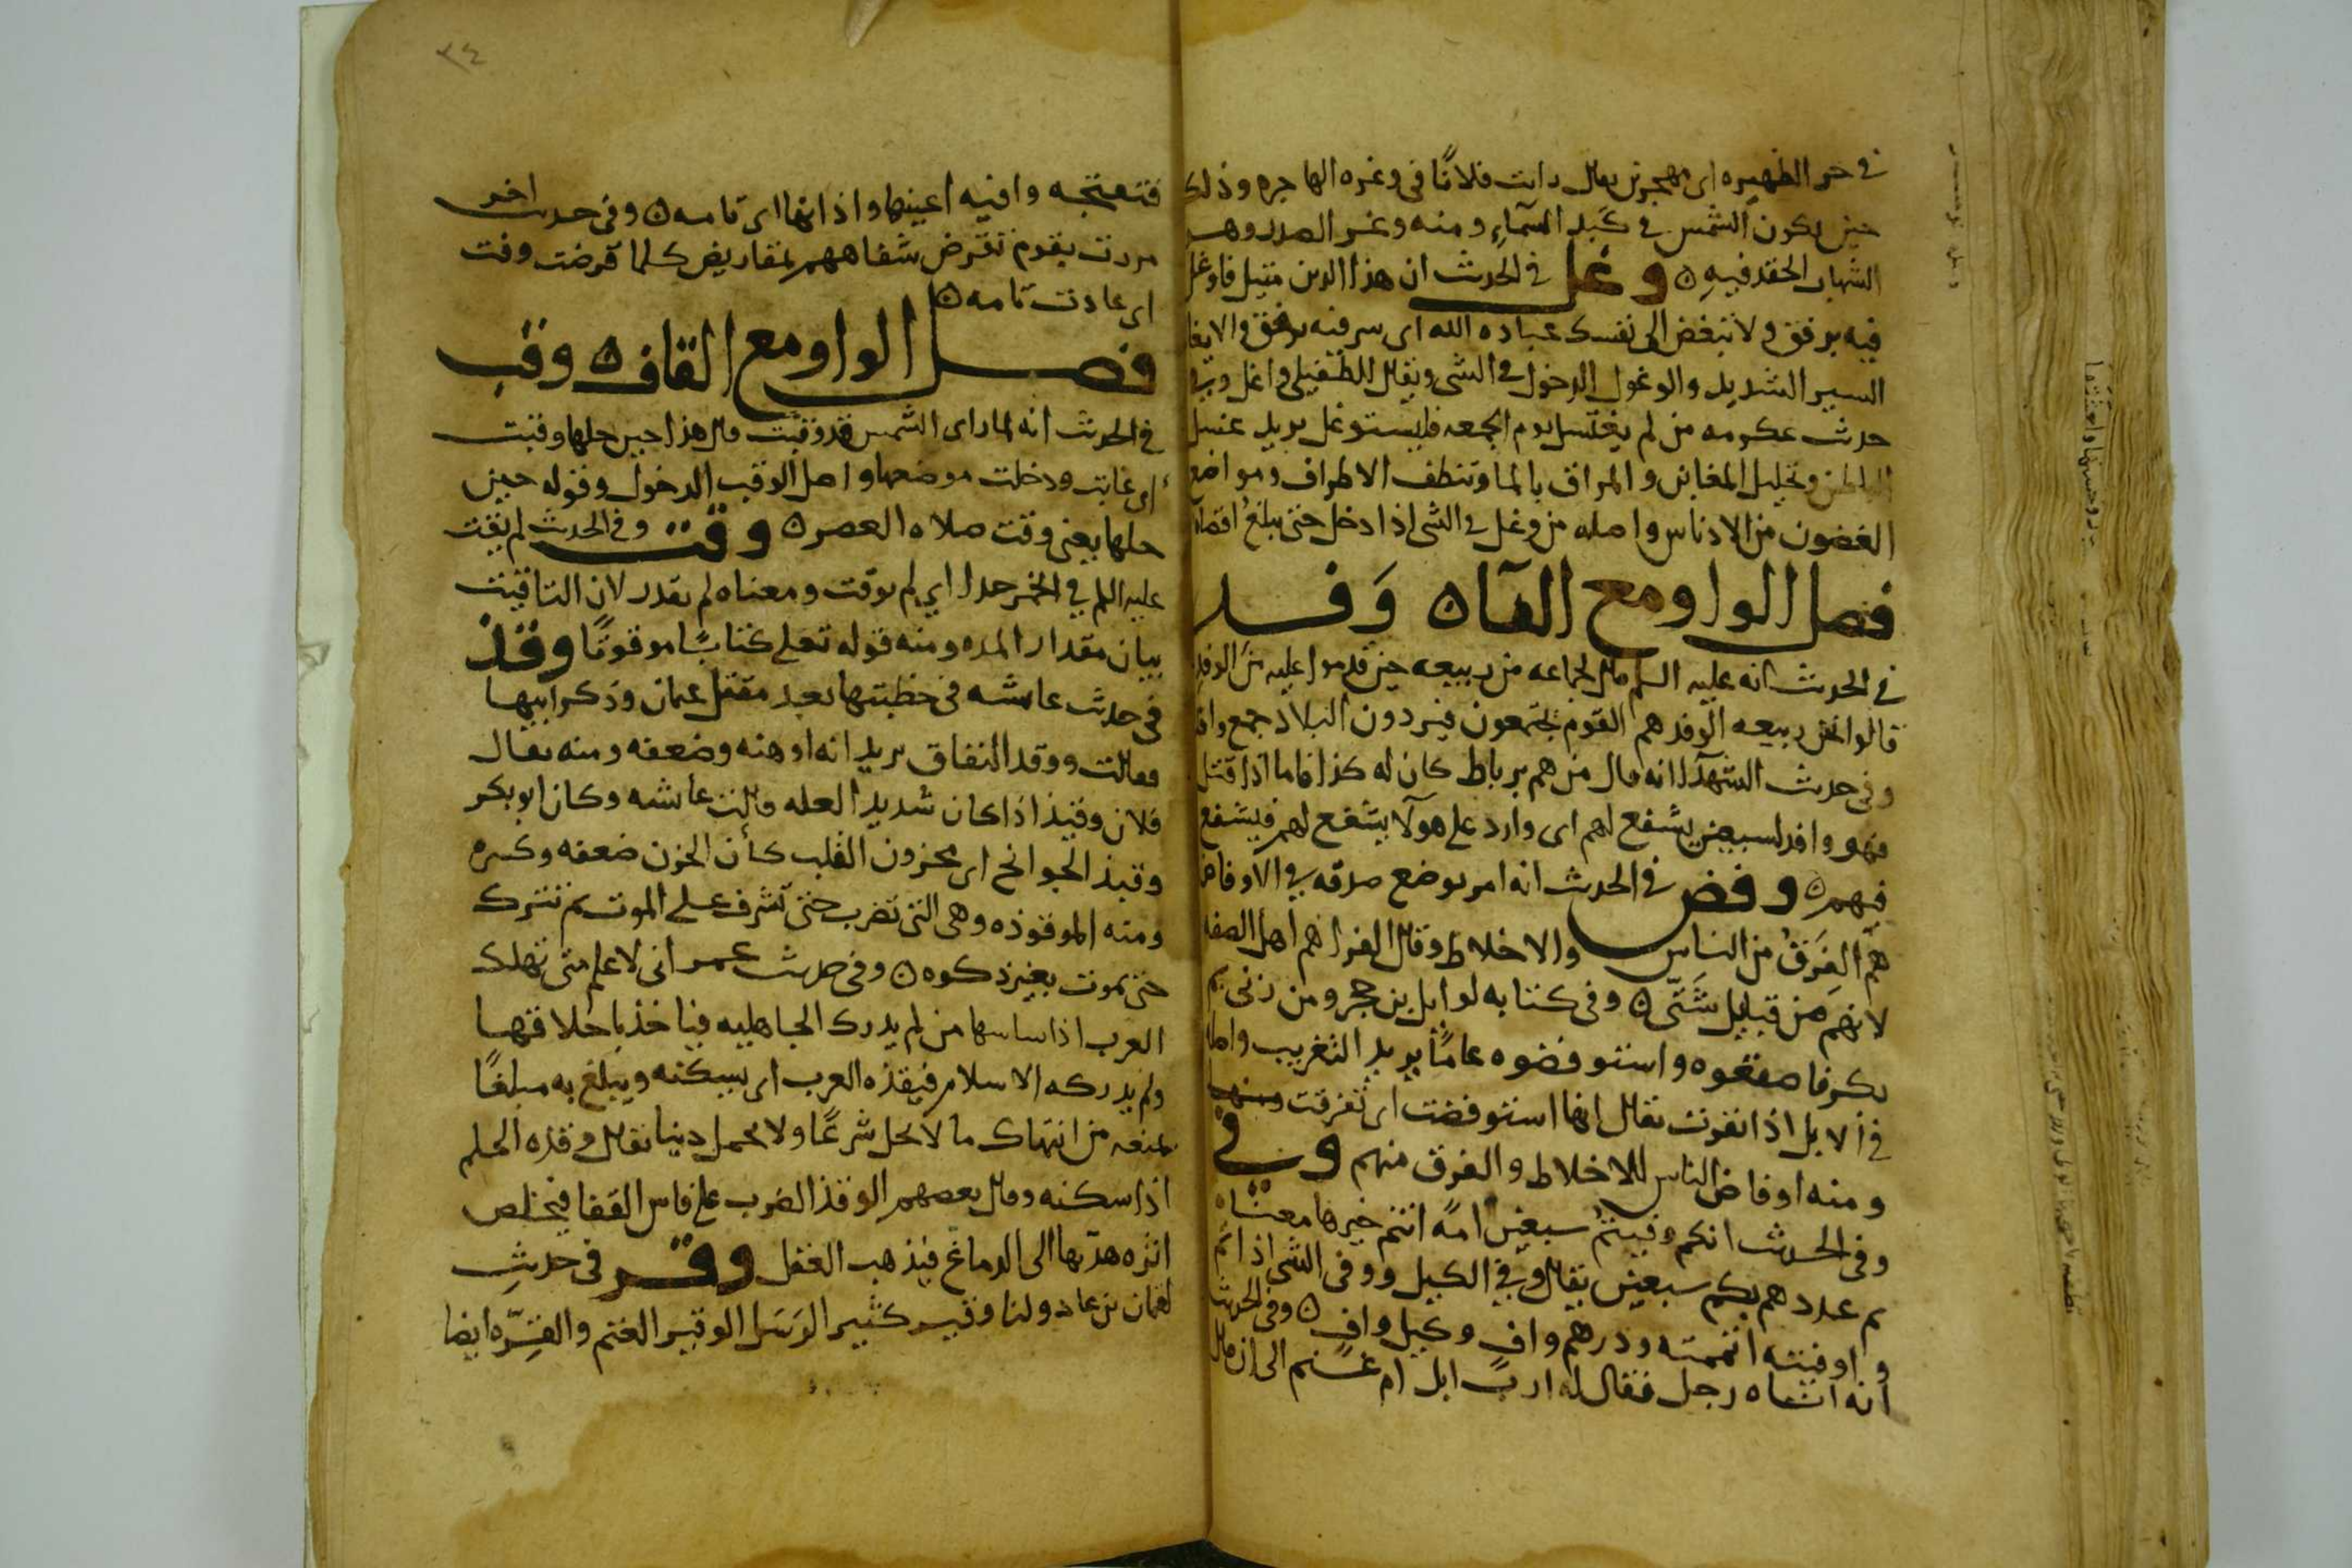 في حر الظهيره اى مهجرين يقال رايت فلانًا في وغره الهاجره وذلك
حين يكون الشمس في كبد السماءِ ومنه وغر الصدر وهو
الحقد فيه ه وغل في الحديث ان هذا الدين متين فاوغل
فيه برفق ولا تبغض الى نفسك عباده الله اى سر فيه برفق والايغا
السير الشديد والوغول الدخول في الشى ويقال للطفيلى واغل وفي
حديث عكرمه من لم يغتسل يوم الجمعه فليستوغل يريد غسل
وتخليل المغابن والمرافق بالما وتنظف الاطراف ومواضع
الغضون من الادناس واصله من وغل في الشى اذا دخل حتى يبلغ اقصاه
فصل الواو مع الفآ ه وَفد
في الحديث انه عليه السلم قال لجماعه من ربيعه حين قدموا عليه من الوفد
قالوا نحن ربيعه الوفد هم القوم يجتمعون فيردون البلاد جمع وافد
وفي حديث الشهدآ انه قال من هم برباط كان له كذا فاما اذا قتل
فهو وافد لسبعين يشفع لهم اى وارد على هولآ يشفع لهم فيشفع
فيهم ه وفض في الحديث انه امر بوضع صدقه في الاوفاض
هم الفِرَقُ من الناس والاخلاط وقال الفرا هم اهل الصفه
لانهم من قبايل شَتّى ه وفى كتابه لوايل بن حجر ومن زنى مم
بكر فاصقعوه واستوفضوه عامًا يريد التغريب واصله
في الابل اذا تفرقت يقال انها استوفضت اى تفرقت
ومنه اوفاض الناس للاخلاط والفرق منهم وفى
وفى الحديث انكم وفيتمُ سبعين امةً انتم خيرها معناه
تم عددهم بكم سبعين يقال وفي الكيل ووفى الشى اذا تم
واوفيته اتممته ودرهم وافٍ وكيل وافٍ ه وفى الحديث
انه اتاه رجل فقال له اربّ ابل ام غنم الى ان قال
فتنتجه وافيه اعينها واذانها اى تامه ه وفى حديث اخر
مررت بقوم تقرض شفاههم بمقاريض كلما قرضت وفت
اى عادت تامه ه
فصل الواو مع القاف ه وقب
في الحديث انه لما راى الشمس قد وقبت قال هذا حين حلها وقبت
اى غابت ودخلت موضعها واصل الوقب الدخول وقوله حين
حلها يعنى وقت صلاه العصر ه وقت وفي الحديث لم يقت
عليه السلم في الخمر حدا اى لم يوقت ومعناه لم يقدر لان التاقيت
بيان مقدار المده ومنه قوله تعلى كتابًا موقوتًا وقذ
في حديث عايشه في خطبتها بعد مقتل عثمان وذكر ابيها
فقالت ووقذ النفاق يريد انه اوهنه وضعفه ومنه يقال
فلان وقيذ اذا كان شديد العله قالت عايشه وكان ابو بكر
وقيذ الجوانح اى محزون القلب كأن الحزن ضعفه وكسره
ومنه الموقوذه وهى التى تضرب حتى تشرف على الموت ثم تترك
حتى تموت بغير ذكوه ه وفى حديث عمر انى لاعلم متى تهلك
العرب اذا ساسها من لم يدرك الجاهليه فياخذ باخلاقها
ولم يدركه الاسلام فيقذه العرب اى يسكنه ويبلغ به مبلغًا
يمنعه من انتهاك ما لا يحل شرعًا ولا يحمل دينا يقال وقذه الحلم
اذا سكنه وقال بعضهم الوقذ الضرب على فاس القفا فيخلص
هدّتها الى الدماغ فيذهب العقل وقر في حديثِ
لقمان بن عاد ولنا وقير كثير الرَسَل الوقير الغنم والقِرَه ايضا